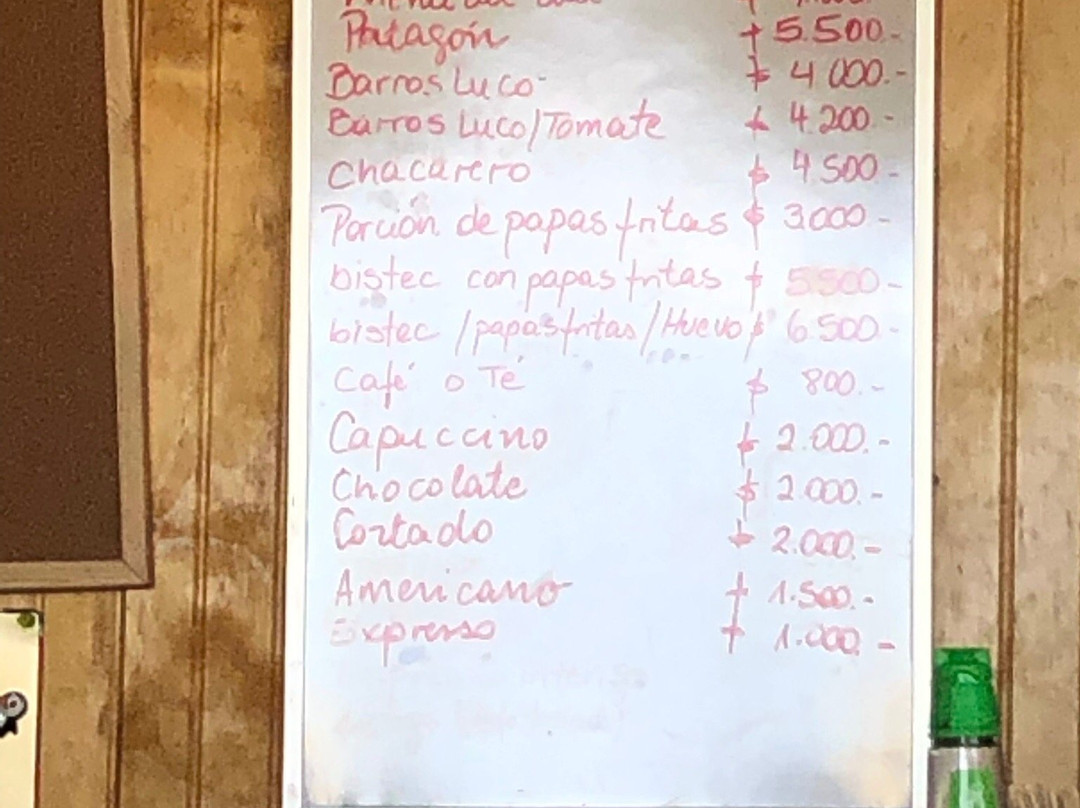 Patagón $ 5.500.-
Barros Luco $ 4000.-
Barros Luco/Tomate $ 4.200.-
Chacarero $ 4.500-
Porción de papas fritas $ 3.000-
bistec con papas fritas $ 5.500-
bistec /papas fritas/Huevo $ 6.500-
Café o Té $ 800.-
Capuccino $ 2.000.-
Chocolate $ 2.000.-
Cortado $ 2.000.-
Americano $ 1.500.-
Expresso $ 1.000.-